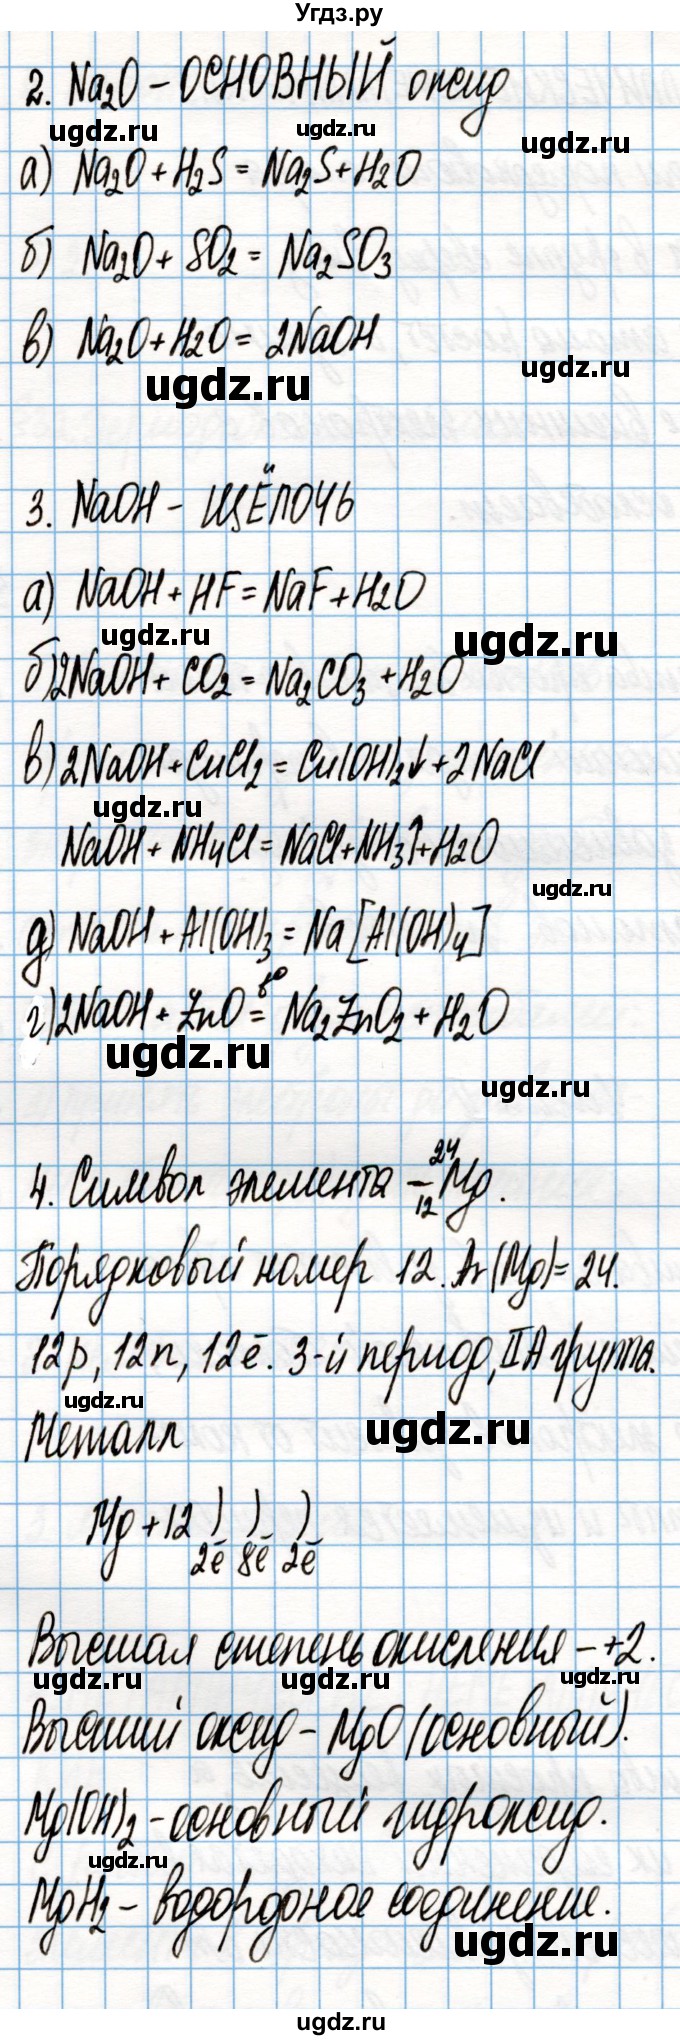 Угдз.ру
2. Na₂O – ОСНОВНЫЙ оксид
ugdz.ru ugdz.ru ugdz.ru
а) Na₂O + H₂S = Na₂S + H₂O
б) Na₂O + SO₂ = Na₂SO₃
в) Na₂O + H₂O = 2NaOH
ugdz.ru ugdz.ru
3. NaOH – ЩЁЛОЧЬ
а) NaOH + HF = NaF + H₂O
ugdz.ru ugdz.ru
б) 2NaOH + CO₂ = Na₂CO₃ + H₂O
в) 2NaOH + CuCl₂ = Cu(OH)₂↓ + 2NaCl
ugdz.ru
NaOH + NH₄Cl = NaCl + NH₃↑ + H₂O
ugdz.ru
д) NaOH + Al(OH)₃ = Na[Al(OH)₄]
г) 2NaOH + ZnO = Na₂ZnO₂ + H₂O
ugdz.ru ugdz.ru
4. Символ элемента – ²⁴₁₂Mg.
Порядковый номер 12. Ar(Mg) = 24.
12p, 12n, 12ē. 3-й период, IIA группа.
ugdz.ru ugdz.ru
Металл
Mg +12 ) ) )
2ē 8ē 2ē
Высшая степень окисления – +2.
ugdz.ru ugdz.ru ugdz.ru
Высший оксид – MgO (основный).
Mg(OH)₂ – основный гидроксид.
ugdz.ru
MgH₂ – водордоное соединение.
ugdz.ru
ugdz.ru